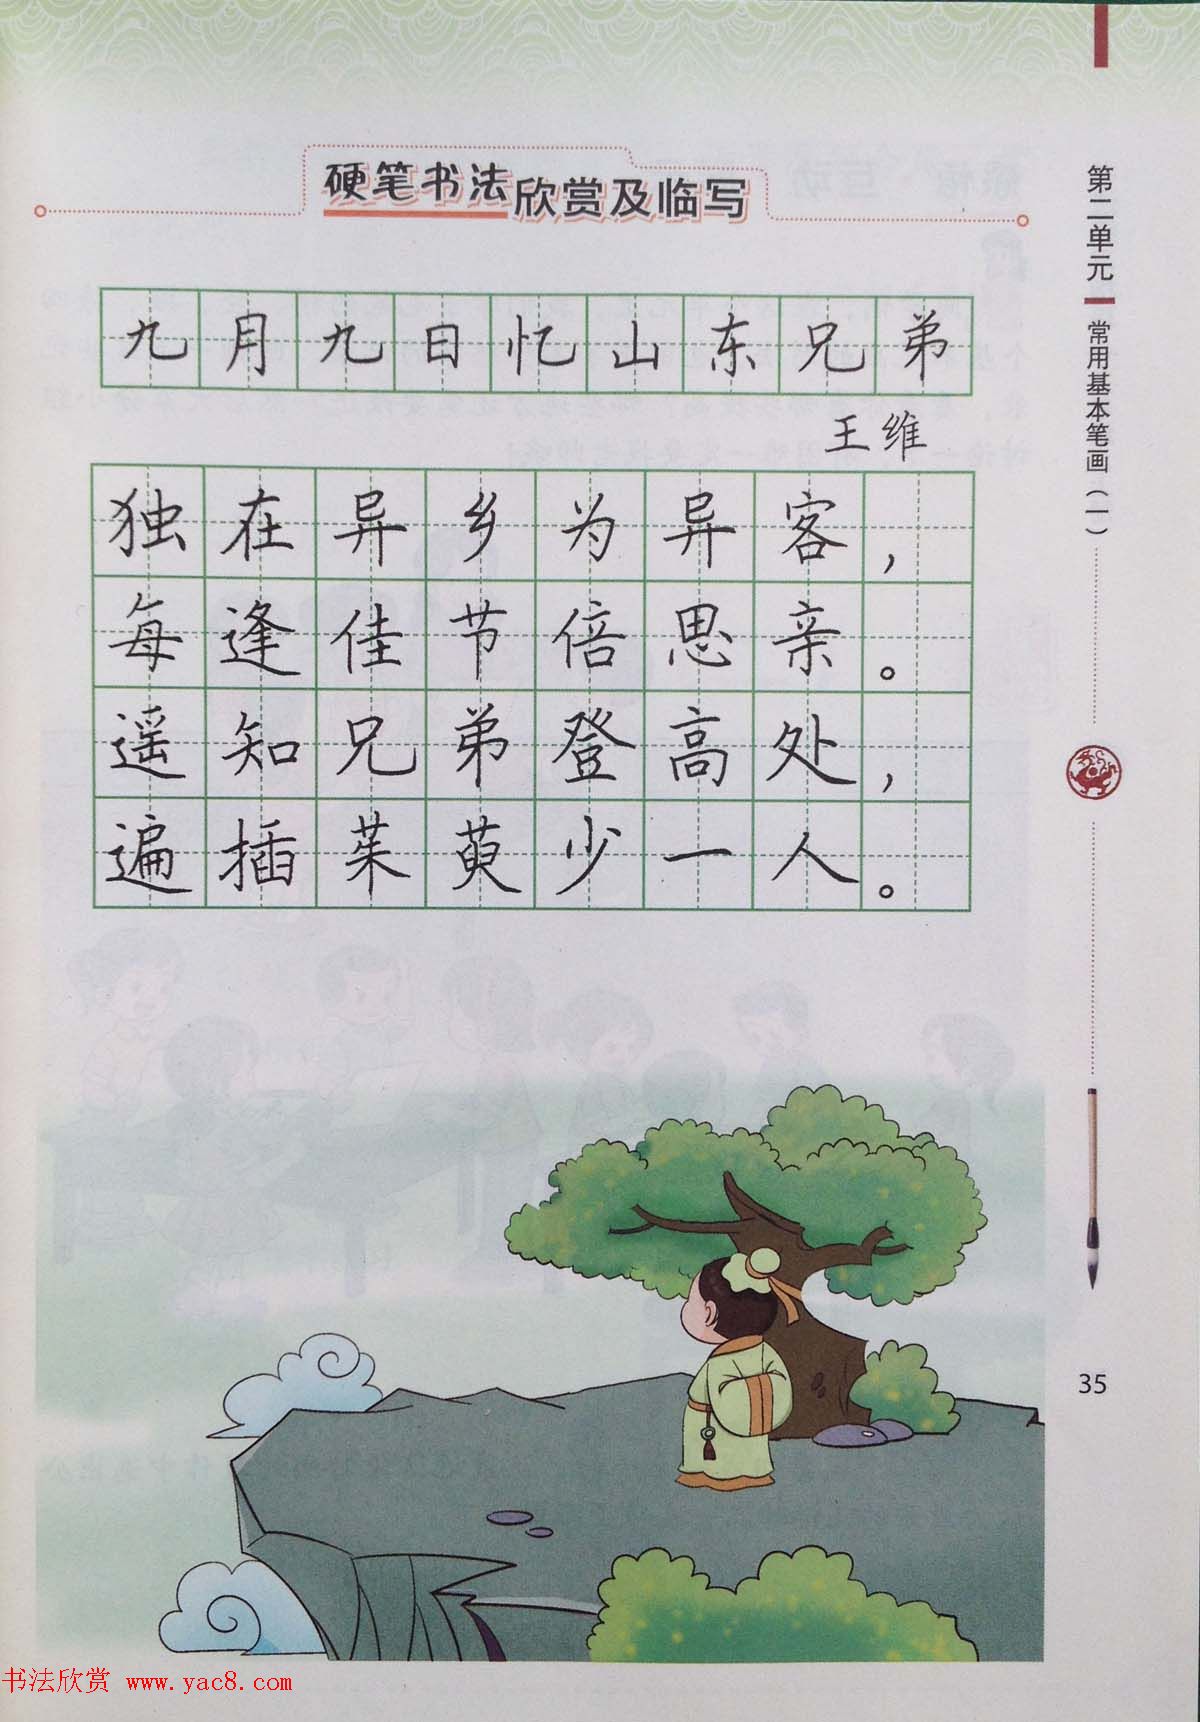 硬笔书法欣赏及临写
九月九日忆山东兄弟
王维
独在异乡为异客，
每逢佳节倍思亲。
遥知兄弟登高处，
遍插茱萸少一人。
第二单元
常用基本笔画（一）
35
书法欣赏 www.yac8.com